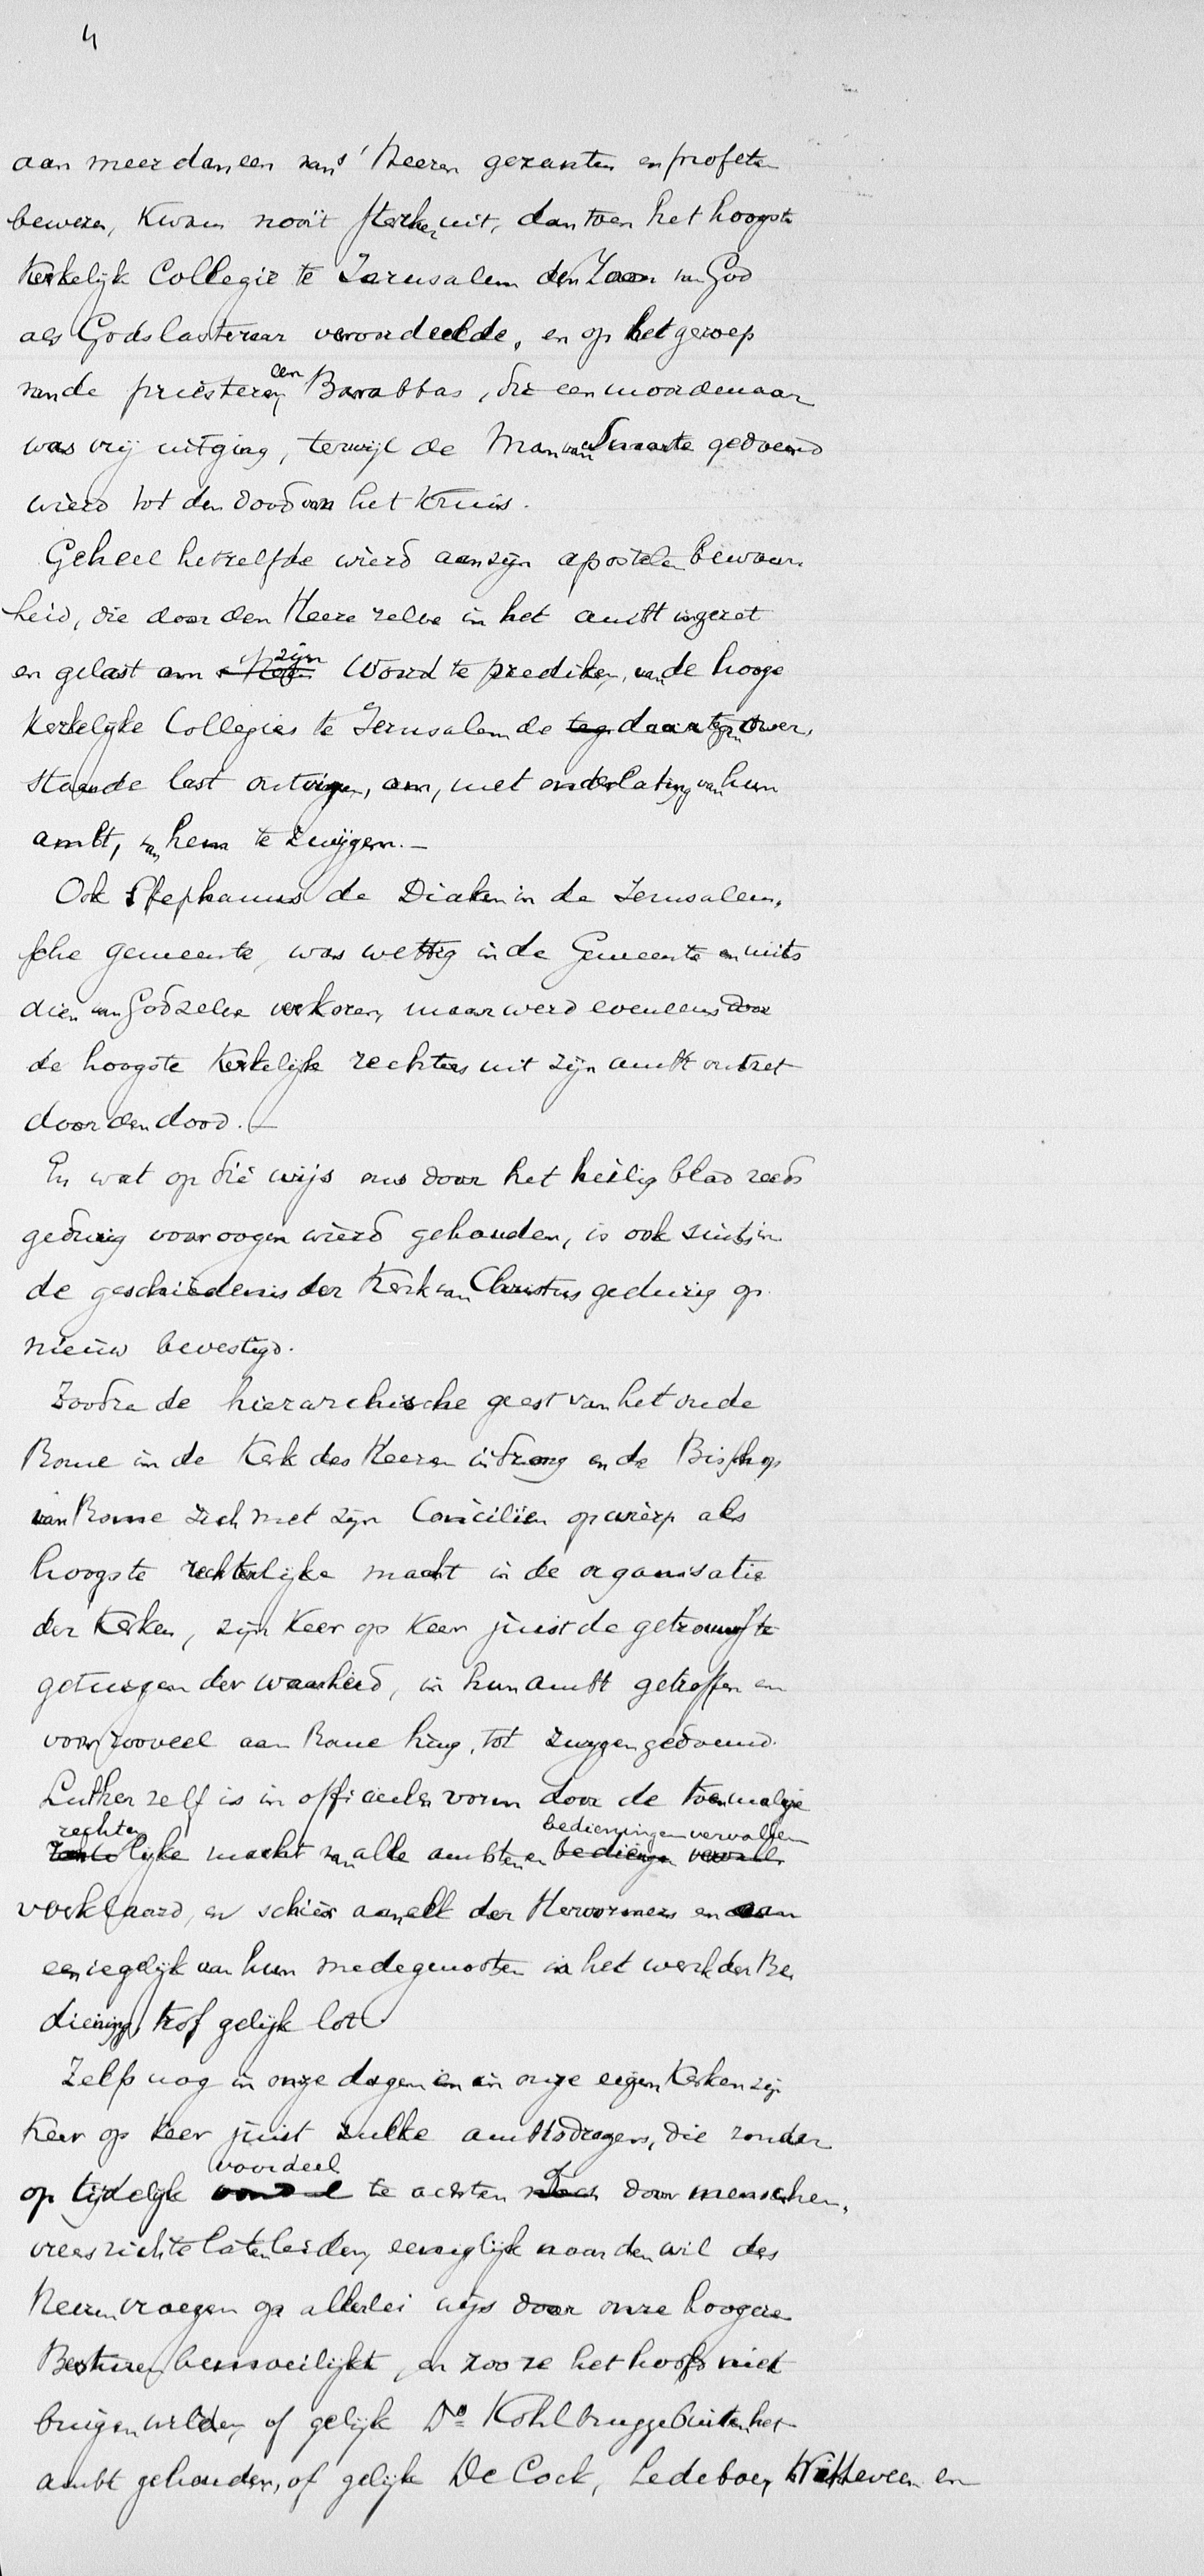 4
aan meer dan een van 's Heeren gezanten en profeten
bewezen, kwam nooit sterker uit, dan toen het hoogste
kerkelijk Collegie te Jerusalem den Zoon van God
als Godslasteraar veroordeelde, en op het geroep
van de priesteren, een Barabbas, die een moordenaar
was vrij uitging, terwijl de Man van Smarte gedoemd
wierd tot den dood van het Kruis.
Geheel hetzelfde wierd aan zijn apostelen bewaar-
heid, die door den Heere zelve in het ambt ingezet
en gelast om zijn Woord te prediken, van de hooge
Kerkelijke Collegies te Jerusalem de daartegenover
staande last ontvingen, om, met onderlating van hun
ambt, van hem te zwijgen. –
Ook Stephanus de Diaken in de Jerusalem-
sche gemeente, was wettig in de Gemeente en mits
dien van God zelve verkoren, maar werd eveneens door
de hoogste Kerkelijke rechters uit zijn ambt ontzet
door den dood. –
En wat op die wijs ons door het heilig blad reeds
gedurig voor oogen wierd gehouden, is ook sinds in
de geschiedenis der Kerk van Christus gedurig op
nieuw bevestigd.
Zoodra de hierarchische geest van het oude
Rome in de Kerk des Heeren indrong en de Bisschop
van Rome zich met zijn Conciliën opwierp als
hoogste rechterlijke macht in de organisatie
der Kerken, zijn keer op keer juist de getrouwste
getuigen der waarheid, in hun ambt getroffen en
voor zooveel aan Rome hing, tot zwijgen gedoemd.
Luther zelf is in officieelen vorm door de toenmalige
rechterlijke macht van alle ambten en bedieningen vervallen
verklaard, en schier aan elk der Hervormers en aan
een iegelijk van hun medegenooten in het werk der Be
diening, trof gelijk lot
Zelfs nog in onze dagen en in onze eigen Kerken zijn
keer op keer juist zulke ambtsdragers, die zonder
op tijdelijk voordeel te achten of door menschen-
vrees zich te laten leiden, eeniglijk naar den wil des
Heeren vroegen op allerlei wijs door onze hoogere
Besturen bemoeilijkt, en zoo ze het hoofd niet
buigen wilden, of gelijk Ds Kohlbrugge buiten het
ambt gehouden, of gelijk De Cock, Ledeboer, Witteveen en